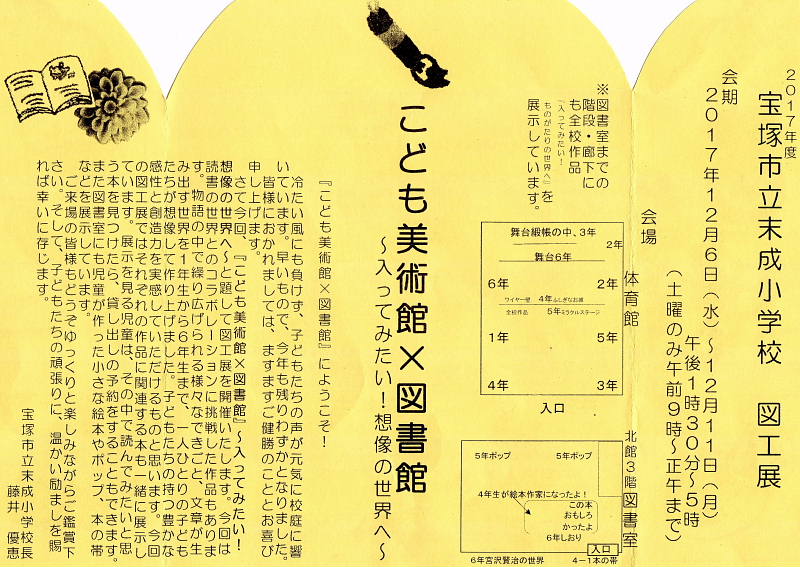 2017年度
宝塚市立末成小学校 図工展
会期
2017年12月6日(水)〜12月11日(月)
午後1時30分〜5時
(土曜のみ午前9時〜正午まで)
会場
体育館
舞台緞帳の中、3年
2年
舞台6年
6年
2年
ワイヤー壁
4年ふしぎなお城
全校作品
5年ミラクルステージ
1年
5年
4年
3年
入口
北館3階図書室
5年ポップ
5年ポップ
4年生が絵本作家になったよ!
この本
おもしろ
かったよ
6年しおり
入口
6年宮沢賢治の世界
4−1本の帯
※図書室までの
階段・廊下に
も全校作品
『入ってみたい!
ものがたりの世界へ』を
展示しています。
こども美術館×図書館
〜入ってみたい!想像の世界へ〜
『こども美術館×図書館』にようこそ!
冷たい風にも負けず、子どもたちの声が元気に校庭に響
いています。早いもので、今年も残りわずかとなりました。
皆様におかれましては、ますますご健勝のこととお喜び
申し上げます。
さて今回、『こども美術館×図書館』〜入ってみたい!
想像の世界へ〜と題して図工展を開催いたします。今回は
読書の世界とのコラボレーションに挑戦した作品もありま
す。物語の中で繰り広げられる様々なできごと、文章が生
み出す世界を1年生から6年生まで、一人ひとりの子ども
たちが想像して作り上げました。子どもたちの持つ豊かな
感性と創造力を実感していただけるものと思います。今回
の図工展ではそれぞれの作品に関連する本も一緒に展示し
ています。展示を見る児童は、その中で読んでみたいと思
う本を見つけたら、貸し出しの予約をすることもできます。
また図書室にも児童が作った小さな絵本やポップ、本の帯
などを展示しています。
ご来場の皆様もどうぞゆっくりと楽しみながらご鑑賞下
さい。そして、子どもたちの頑張りに、温かい励ましを賜
れば幸いに存じます。
宝塚市立末成小学校長
藤井 優恵